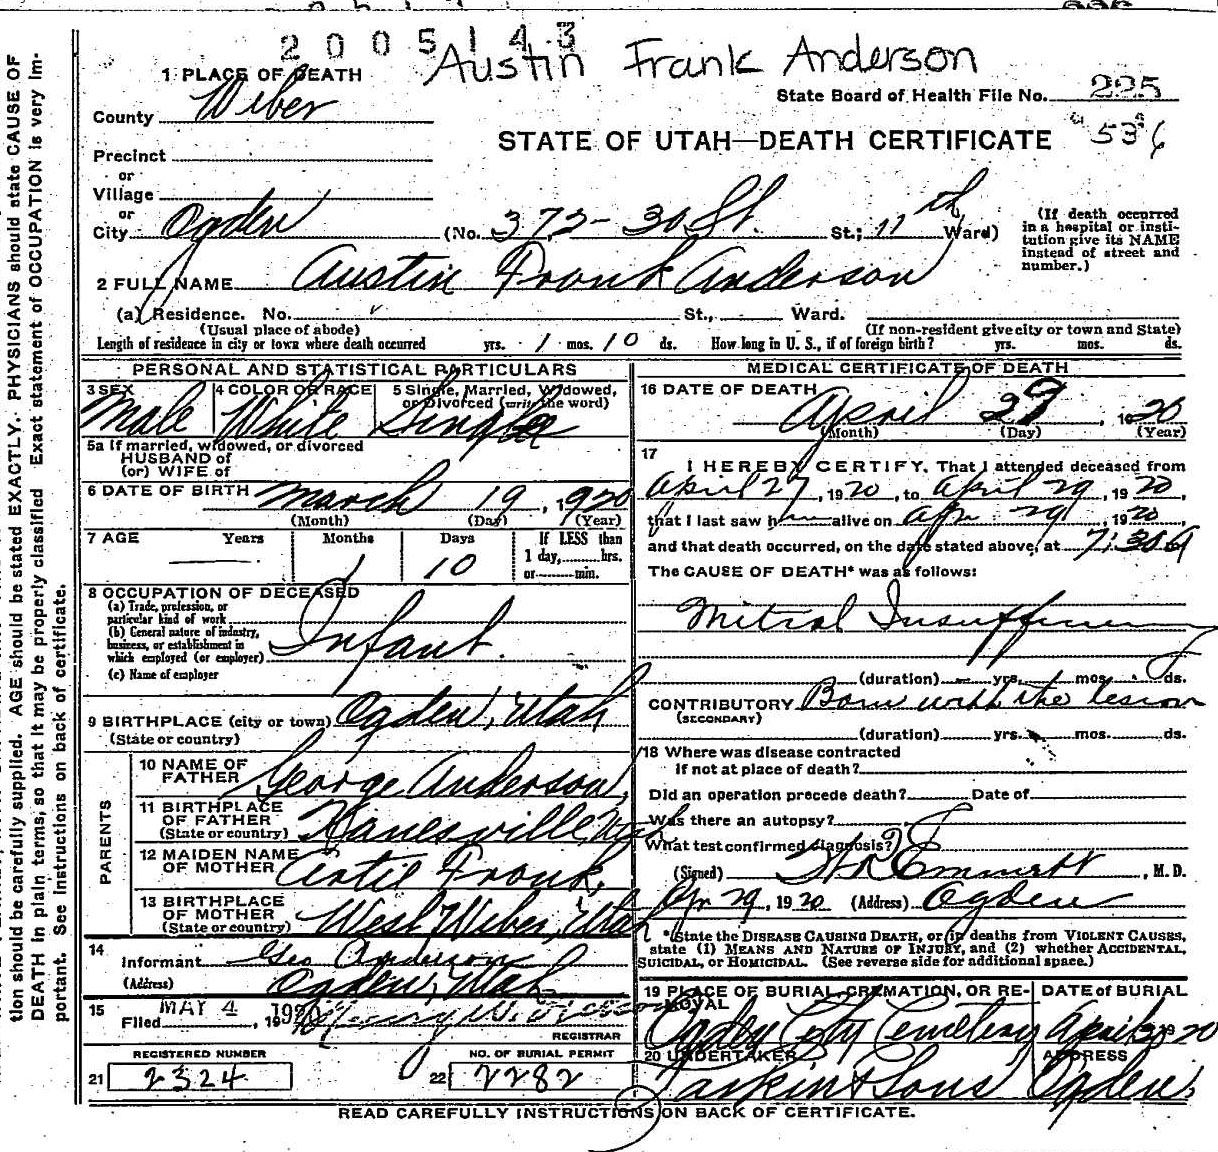 2005143
Austin Frank Anderson
1 PLACE OF DEATH
State Board of Health File No. 225
County Weber
STATE OF UTAH—DEATH CERTIFICATE 536
Precinct
or
Village
or
City Ogden (No. 373 - 30 St. St.; 11th Ward)
(If death occurred in a hospital or institution give its NAME instead of street and number.)
2 FULL NAME Austin Frank Anderson
(a) Residence. No. St., Ward.
(Usual place of abode) (If non-resident give city or town and State)
Length of residence in city or town where death occurred yrs. 1 mos. 10 ds. How long in U. S., if of foreign birth? yrs. mos. ds.
PERSONAL AND STATISTICAL PARTICULARS
3 SEX Male
4 COLOR OR RACE White
5 Single, Married, Widowed, or Divorced (write the word) Single
5a If married, widowed, or divorced
HUSBAND of
(or) WIFE of
6 DATE OF BIRTH March 19, 1920
(Month) (Day) (Year)
7 AGE Years Months 1 Days 10
If LESS than 1 day, hrs. or min.
8 OCCUPATION OF DECEASED
(a) Trade, profession, or particular kind of work
(b) General nature of industry, business, or establishment in which employed (or employer) Infant.
(c) Name of employer
9 BIRTHPLACE (city or town) Ogden, Utah
(State or country)
PARENTS
10 NAME OF FATHER George Anderson,
11 BIRTHPLACE OF FATHER (State or country) Kanesville, Utah
12 MAIDEN NAME OF MOTHER Frank,
13 BIRTHPLACE OF MOTHER (State or country) West Weber, Utah
14 Informant Geo Anderson
(Address) Ogden, Utah
15 Filed MAY 4, 1920
REGISTRAR
REGISTERED NUMBER
21 2324
NO. OF BURIAL PERMIT
22 2282
MEDICAL CERTIFICATE OF DEATH
16 DATE OF DEATH April 29, 1920
(Month) (Day) (Year)
17 I HEREBY CERTIFY, That I attended deceased from
April 27, 1920, to April 29, 1920,
that I last saw him alive on Apr 29, 1920
and that death occurred, on the date stated above, at 7:30 A
The CAUSE OF DEATH* was as follows:
Mitral Insufficiency
(duration) yrs. mos. ds.
CONTRIBUTORY Born with the lesion
(SECONDARY)
(duration) yrs. mos. ds.
18 Where was disease contracted
if not at place of death?
Did an operation precede death? Date of
Was there an autopsy?
What test confirmed diagnosis?
(Signed) Emmett, M. D.
Apr 29, 1920 (Address) Ogden
*State the DISEASE CAUSING DEATH, or in deaths from VIOLENT CAUSES,
state (1) MEANS AND NATURE OF INJURY, and (2) whether ACCIDENTAL,
SUICIDAL, or HOMICIDAL. (See reverse side for additional space.)
19 PLACE OF BURIAL, CREMATION, OR REMOVAL Ogden City Cemetery
DATE of BURIAL April 1920
20 UNDERTAKER Larkin & Sons
ADDRESS Ogden,
READ CAREFULLY INSTRUCTIONS ON BACK OF CERTIFICATE.
tion should be carefully supplied. AGE should be stated EXACTLY. PHYSICIANS should state CAUSE OF
DEATH in plain terms, so that it may be properly classified Exact statement of OCCUPATION is very Im-
portant. See instructions on back of certificate.